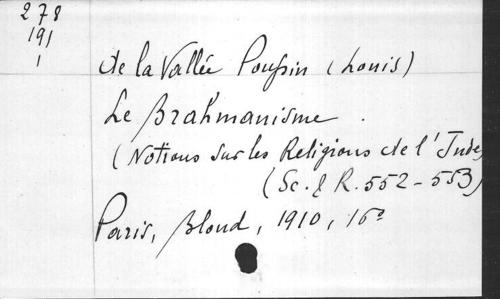 278
191
1
de la Vallée Poussin (Louis)
Le Brahmanisme.
(Notions sur les Religions de l'Inde)
(Sc. & R. 552-553)
Paris, Blond, 1910, 16º